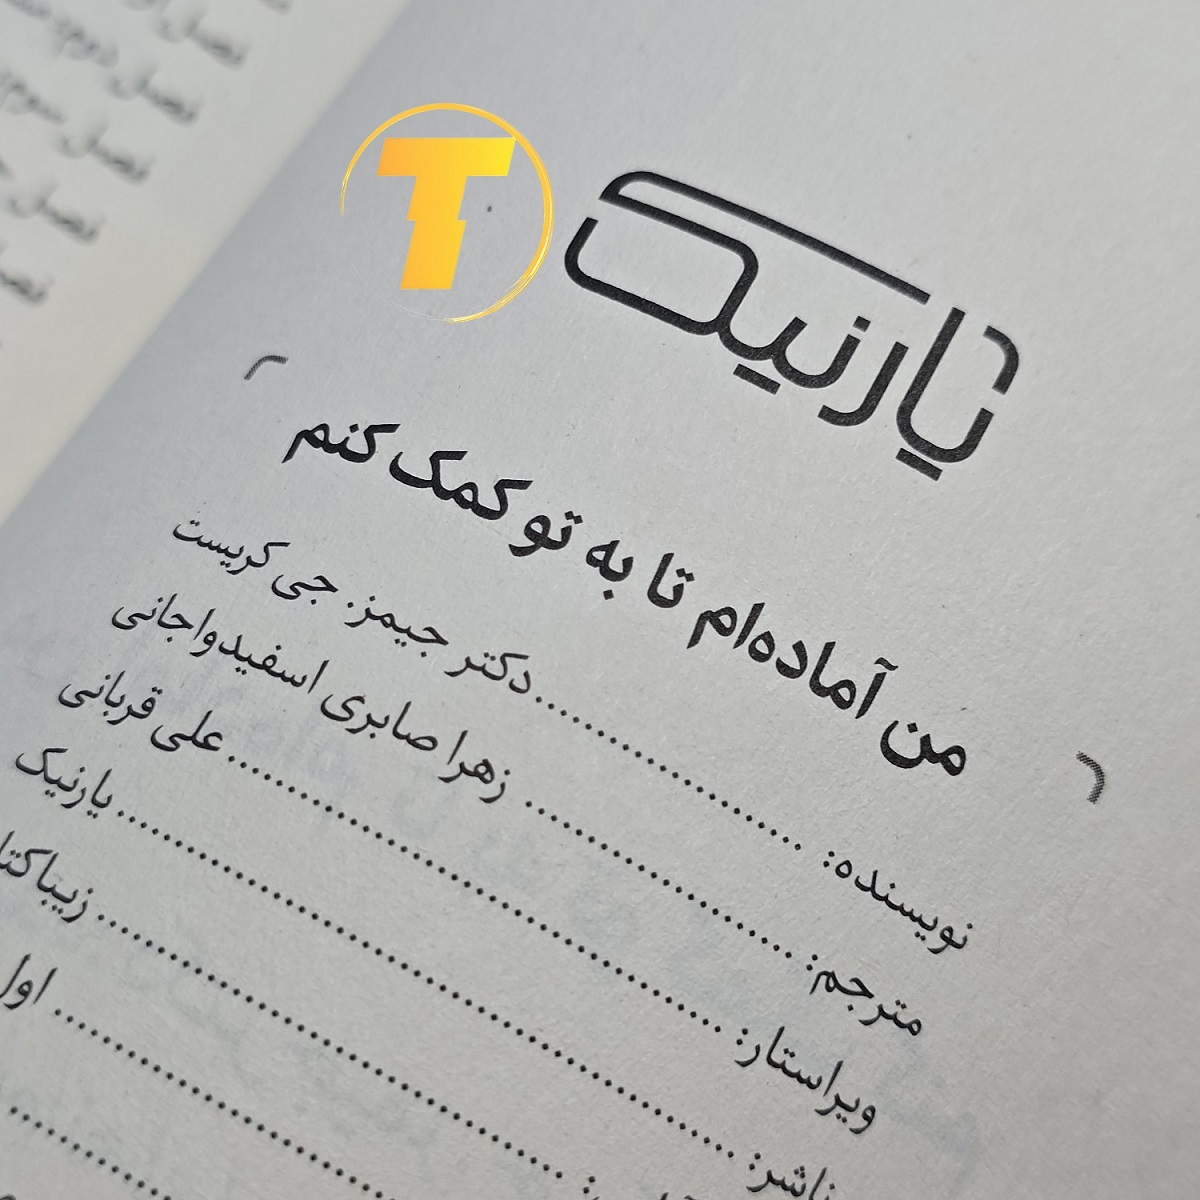 یارنیک
من آماده‌ام تا به تو کمک کنم
نویسنده: ........ دکتر جیمز. جی کریست
مترجم: ........ زهرا صابری اسفیدواجانی
ویراستار: ........ علی قربانی
ناشر: ........ یارنیک
اول
فصل
فصل دوم:
فصل سوم:
فصل
فصل
T